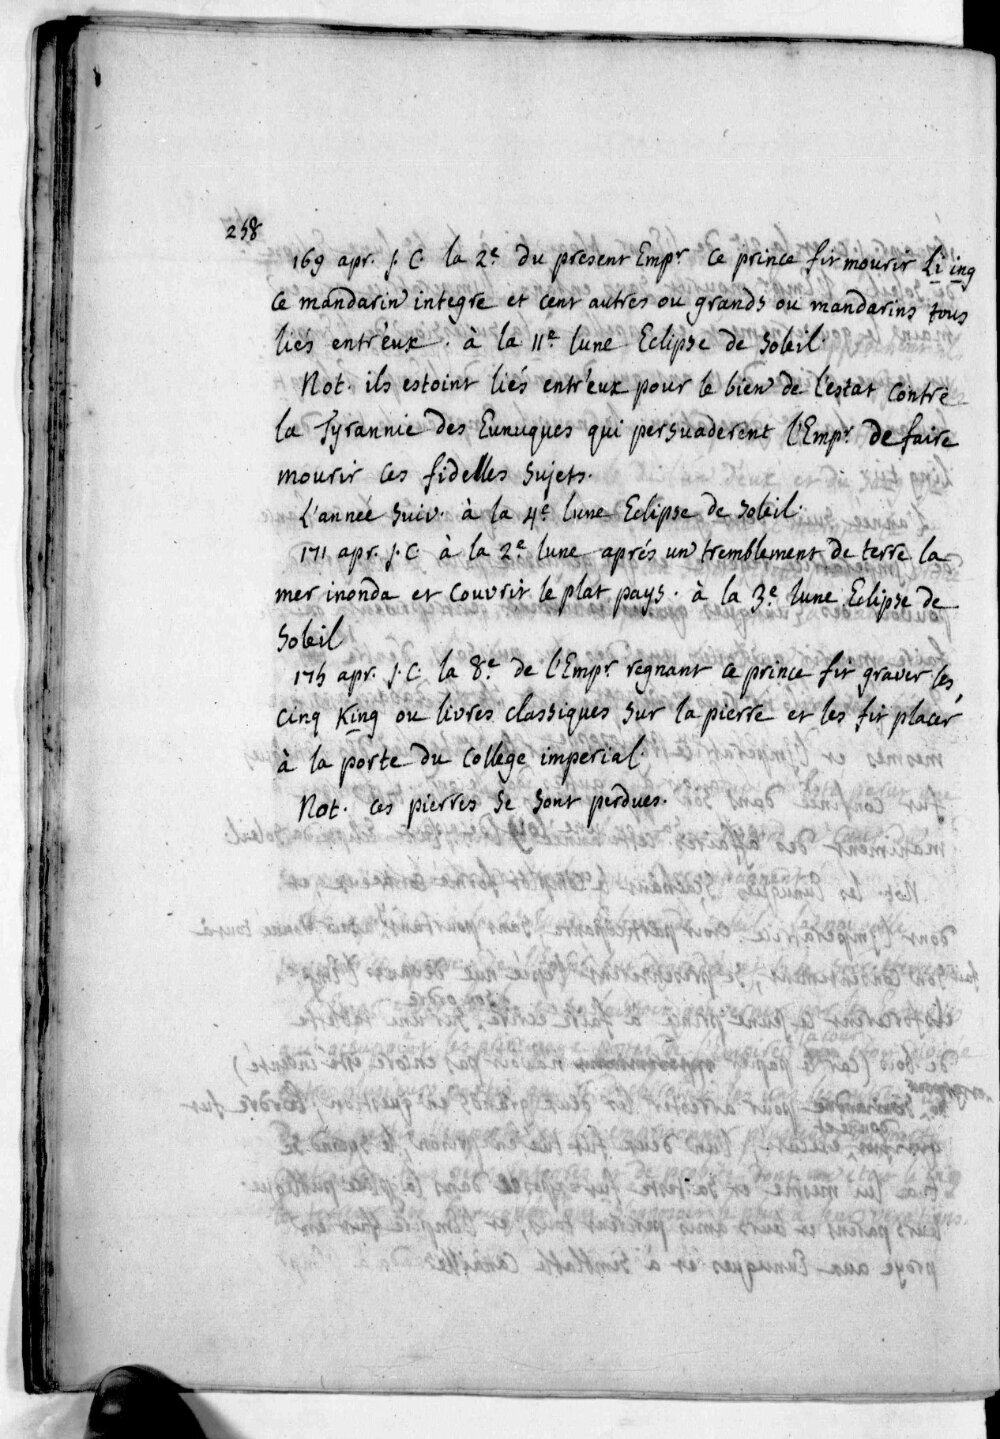 258
169 apr. J. C. la 2e. du present Empr. ce prince fit mourir Li ing
ce mandarin integre et cent autres ou grands ou mandarins tous
liés entr'eux. à la 11e. lune Eclipse de soleil.
Not. ils estoint liés entr'eux pour le bien de l'estat contre
la Tyrannie des Eunuques qui persuaderent l'Empr. de faire
mourir ces fidelles sujets.
L'année suiv. à la 4e. lune Eclipse de soleil.
171 apr. J. C. à la 2e. lune aprés un tremblement de terre la
mer inonda et couvrit le plat pays. à la 3e. lune Eclipse de
soleil
175 apr. J. C. la 8e. de l'Empr. regnant ce prince fit graver les
cinq King ou livres classiques sur la pierre et les fit placer
à la porte du college imperial.
Not. ces pierres se sont perdues.